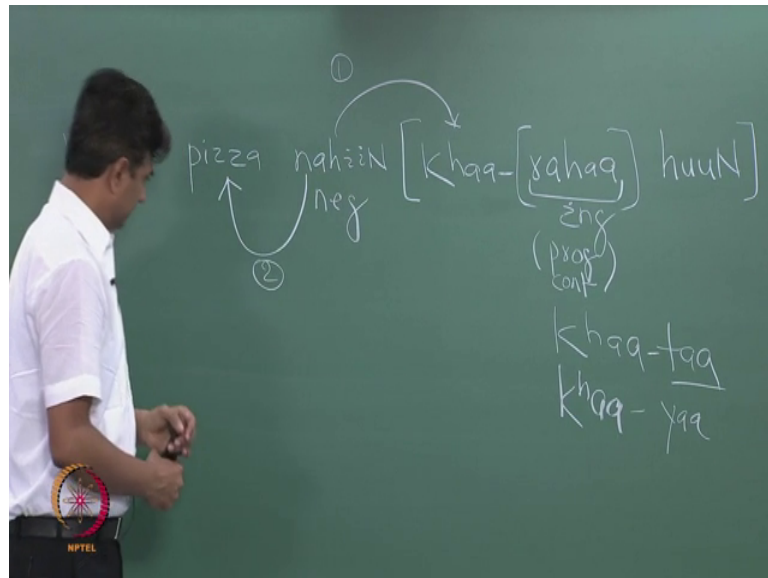 ①
pizza nahiiN [khaa-(rahaa) huuN]
neg ing
②
(prog
cont)
khaa-taa
khaa-yaa
NPTEL